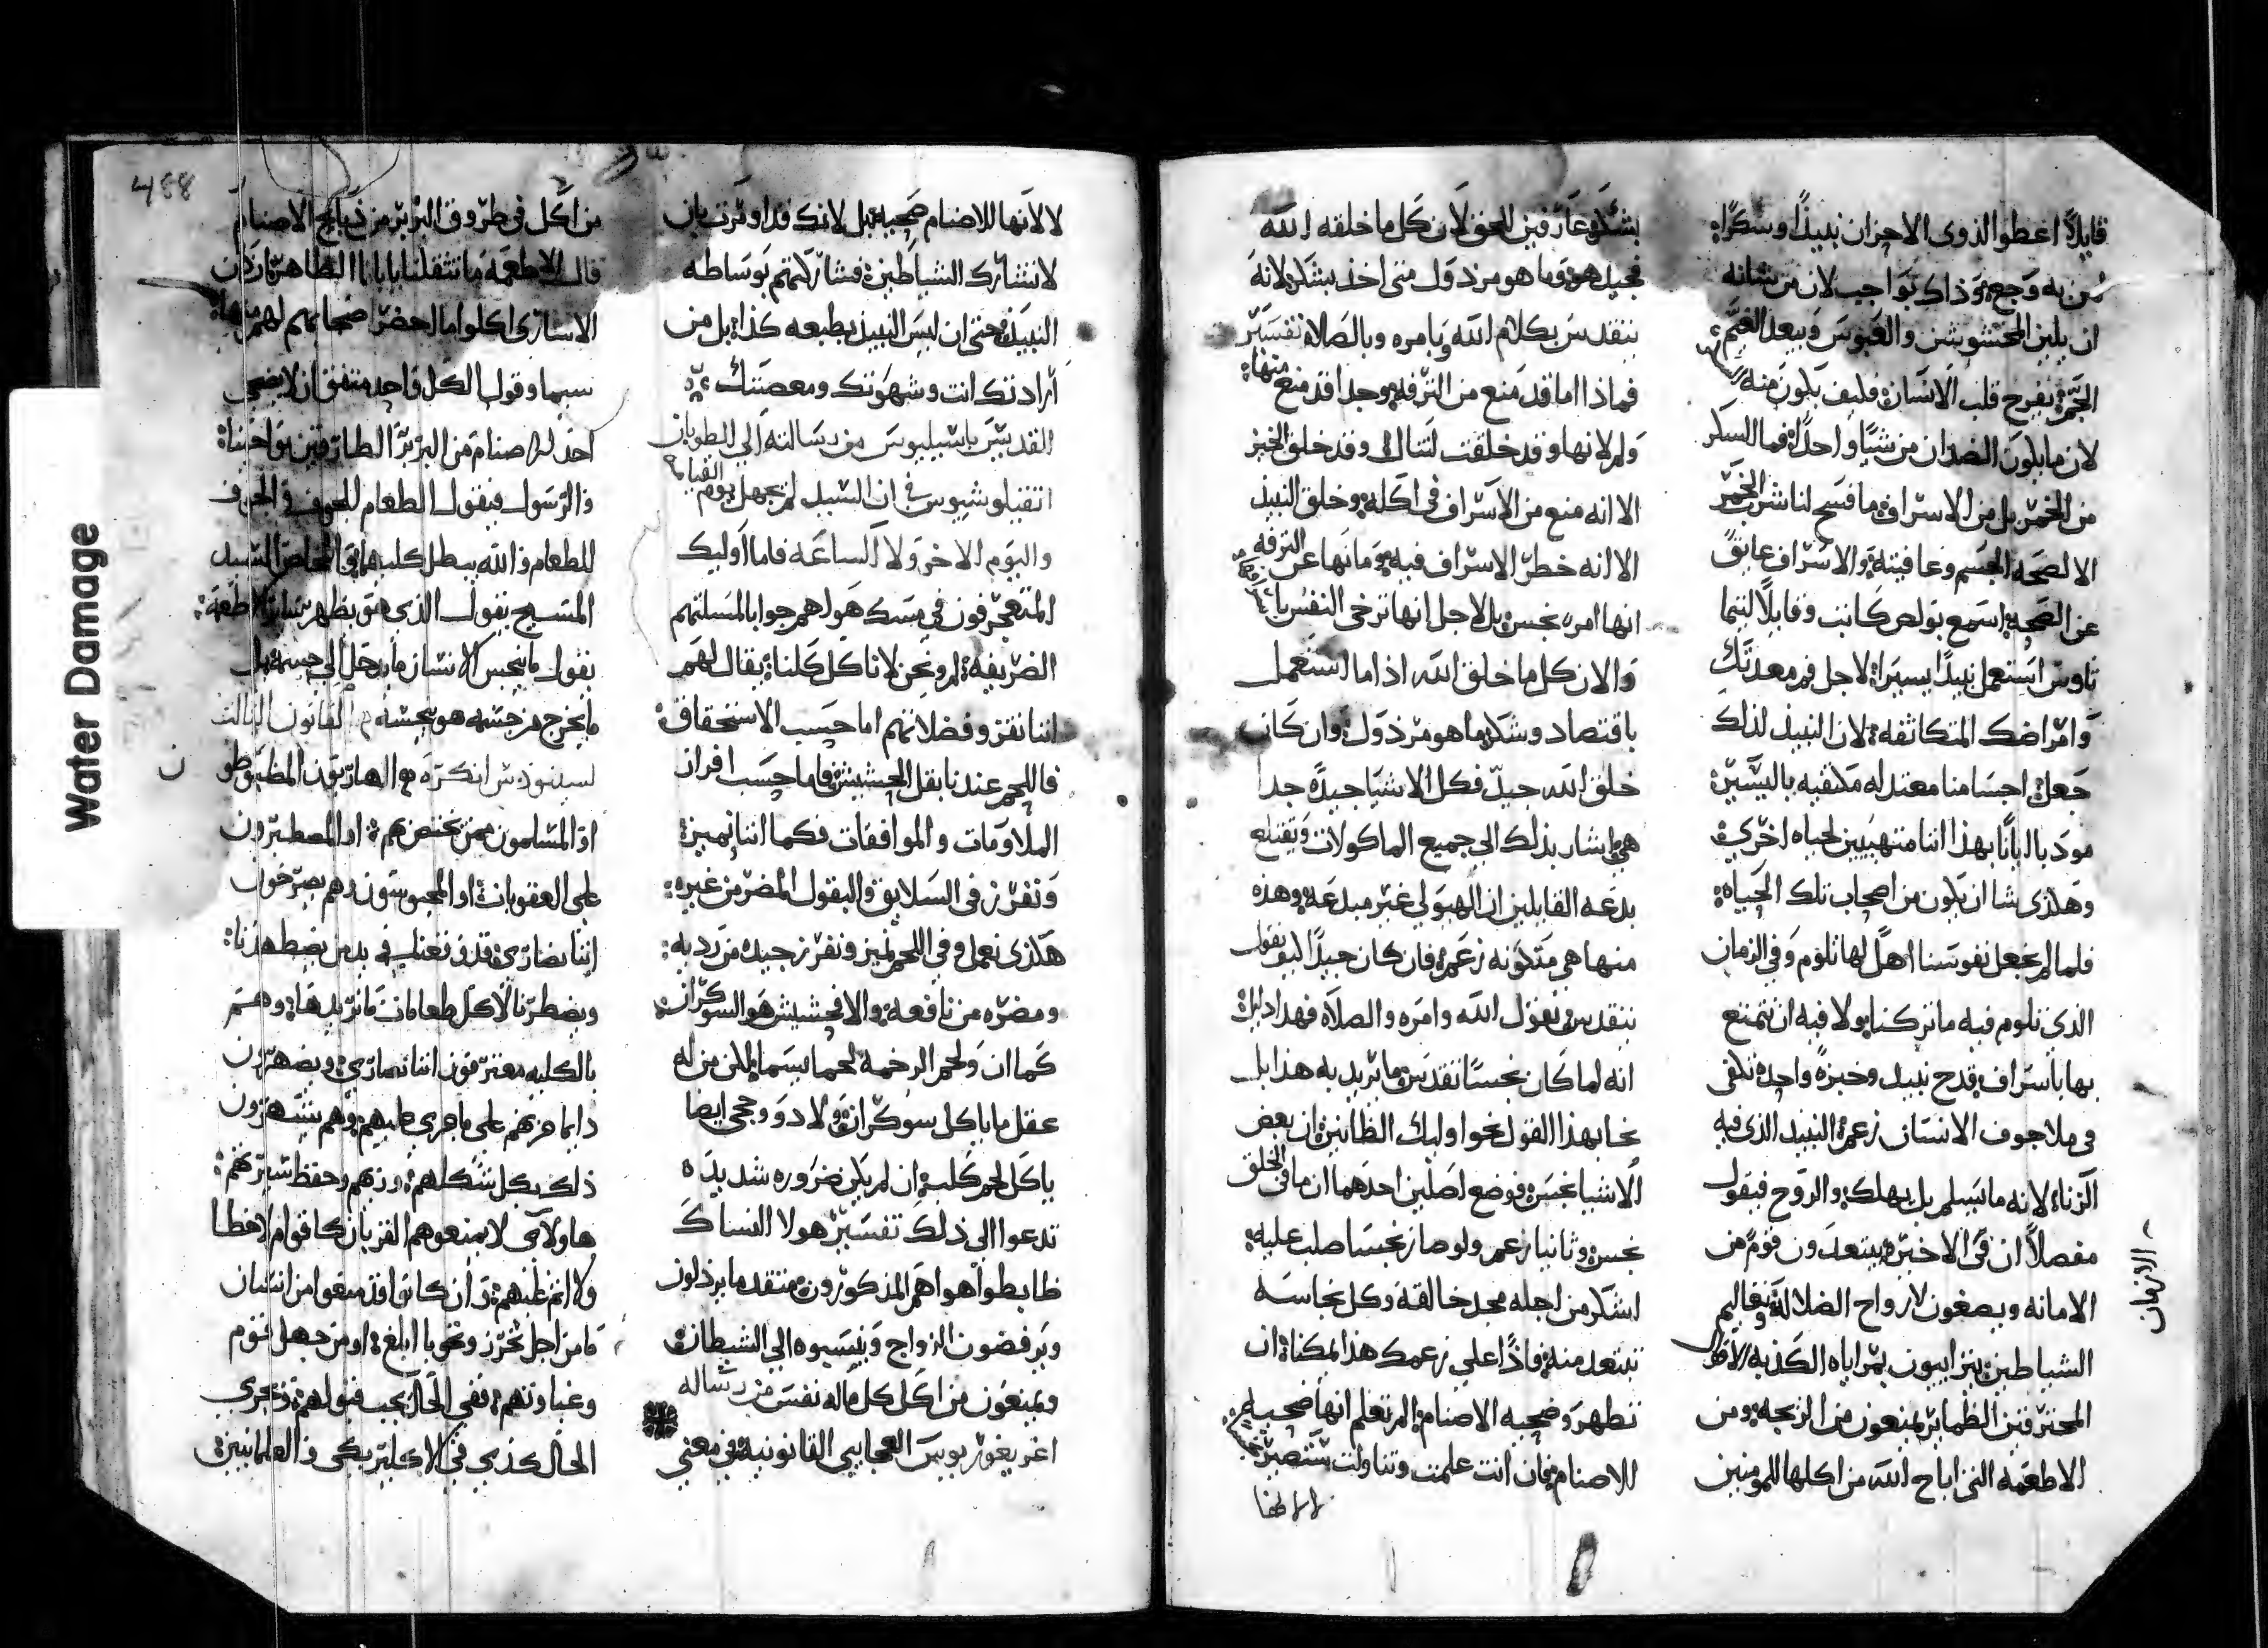 قايلاً اعطوا الذوى الاحزان نبيذًا وسكرًا؛
من به وجع؛ وذاك بواجب لان من شانه
ان يلين المخشوشن والعبوس ويبعد الغم؛
الخمرة يفرح قلب الانسان؛ فكيف يكون منه
لان ما يكون الضدان من شيًا واحدًا؛ فما السكر
من الخمر بل من الاسراف؛ ما فسح لنا شرب الخمر
الا لصحه الجسم وعافيته؛ والاسراف عايق
عن الصحه؛ اسمع بولص كاتب وقايلاً لتيما
تاوس استعمل نبيذًا يسيرًا؛ لاجل فم معدتك
وامراضك المتكاثفه؛ لان النبيذ لذلك
جعل؛ اجسامنا معتدله مكتفيه باليسير؛
مودبًا ايانا بهذا اننا متهييين لحياه اخرى؛
وهكذى شا ان نكون من اصحاب تلك الحياه؛
فلما لم نجعل نفوسنا اهلًا لها نلوم وفى الزمان
الذى نلوم فيه ما تركنا ولا فيه ان نتمتع
بها باسراف؛ قدح نبيد وخبزةً واحدة تكفى
فى ملا جوف الانسان زعم؛ النبيد الذى فيه
الزنا؛ لانه ما يسلم بل يهلك؛ والروح فيقول
مفصلاً ان فى الاخيرة يبتعدون قومً من
الامانه ويصغون لارواح الضلاله وتعاليم
الشياطين؛ يتراييون بمراياه الكذبه
المحترقين الظماير؛ يمنعون من الزيجه؛ ومن
الاطعمه التى اباح الله من اكلها للمومنين
بشكر؛ وعارفين للحق لان كل ما خلقه الله
فجيد هو؛ وما هو مرذول متى اخذ بشكر لانه
يتقدس بكلام الله وبامره وبالصلاة تفسير
فماذا اما قد منع من الترفه؛ وجدا قد منع منها؛
ولم لانها وقد خلقت لتنال؛ وقد خلق الخبز
الا انه منع من الاسراف فى اكله؛ وخلق النبيذ
الا انه حظر الاسراف فيه؛ وما نها عن الترفه
انها امر نجس؛ بل لاجل انها ترخى النفس
والان كل ما خلق الله اذا ما استعمل
باقتصاد وشكر؛ ما هو مرذول؛ وان كان
خلق الله جيد فكل الاشيا جيدًه جدا
هى؛ اشار بذلك الى جميع الماكولات ويقتلع
بدعه القايلين ان الهيولى غير مبدعه؛ وهذه
منها هى متكونه زعم؛ فان كان جيدًا
يتقدس بقول الله وامره والصلاه فهذا دليل
انه لما كان نجسًا تقدس؛ ما يريد به هذا بل
نحا بهذا القول نحو اوليك الظانين؛ ان بعض
الاشيا نجسه؛ فوضع اصلين احدهما ان ما فى الخلق
نجس؛ وثانيا زعم ولو صار نجسًا صلب عليه؛
اشكر من اجله مجد خالقه؛ وكل نجاسه
تبتعد منه؛ فاذًا على زعمك هذا يمكنا؛ ان
نطهر وضحيه الاصنام؛ الم تعلم انها ضحيه
للاصنام؛ فان انت علمت وتناولت ستصير
لا لانها
لا لانها للاصنام ضحيه؛ بل لانك قد اومرت بان
لا تشارك الشياطين؛ فشاركتهم بوساطه
النبيذ؛ حتى ان ليس النبيذ بطبعه كذا؛ بل من
ارادتك انت وشهوتك ومعصيتك؛
القديس باسيليوس من رسالته الى الطوبان
انفيلوشيوس فى ان السيد لم يجهل يوم القيامه
واليوم الاخر ولا الساعه فاما اوليك
المتعجرفون فى مسك هولهم جوابا لمسلتهم
الضريفه؛ لم ونحن لا ناكل كلنا؛ يقال لهم
اننا نفرز وفضلاتهم اما حسب الاستحقاق؛
فاللحم عندنا بقل الحشيش؛ فاما حسب افراز
الملاومات والموافقات فكما اننا نميز؛
ونفرز فى السلايق والبقول المضر من غيره؛
هكذى نعمل وفى اللحم نميز ونفرز جيده من رديه؛
ومضره من نافعه؛ والا فحشيش هو السوكران؛
كما ان ولحم الرخمة لحما يسما؛ لكن من له
عقل ما ياكل سوكران؛ ولا دو وحجى ايضا
ياكل لحم كلب؛ ان لم يكن ضروره شديده
تدعوا الى ذلك تفسير هولا النساك
ظابطوا هواهم المذكورون؛ منتقد ما يرذلون
ويرفضون الزواج وينسبوه الى الشيطان؛
ويمنعون من اكل كل ماله نفس من رساله
اغريغوريوس العجايبى القانونيه؛ فى معنى
من اكل فى طروق البربر من ذبايح الاصنام
قال الاطعمة ما تثقلنا يا بابا الطاهر؛ ان كان
الاسارى اكلوا ما احضر اصحابهم لهم منها؛
سيما وقول الكل واحد متفق ان لا يضحى
احد للاصنام من البربر الطارقين نواحينا؛
والرسول فيقول الطعام للجوف والجوف
للطعام والله يبطل كليهما؛ والمخلص السيد
المسيح يقول الذى هو يطهر ساير الاطعمه؛
يقول ما ينجس الانسان ما يدخل الى جسمه بل
ما يخرج من جسمه هو ينجسه؛ القانون الثالث
لسينودس انكرة؛ الهاربون المظبوطو
او المسلمون ممن يختص بهم؛ او المصطبرون
على العقوبات؛ او المحبوسون وهم يصرخون
اننا نصارى؛ قد وقعنا فى يد من يضطهدنا؛
ويضطرنا لاكل طعامات ما نريدها؛ وهم
بالكليه معترفون اننا نصارى؛ ويضهرون
دايما حزنهم على ما جرى عليهم؛ وهم يشهرون
ذلك بكل شكلهم؛ وزيهم وحفظ سيرتهم؛
هاولاى لا يمنعوهم القربان؛ كاقوام لا خطا
ولا اثم عليهم؛ وان كانوا قد منعوا من انسان
ما من اجل تحرز ونحو ما ابلغ؛ او من جهل قوم
وغباوتهم؛ ففى الحال يجب قبولهم؛ ويجرى
الحال كذى فى الاكليريكى والعلمانيين؛